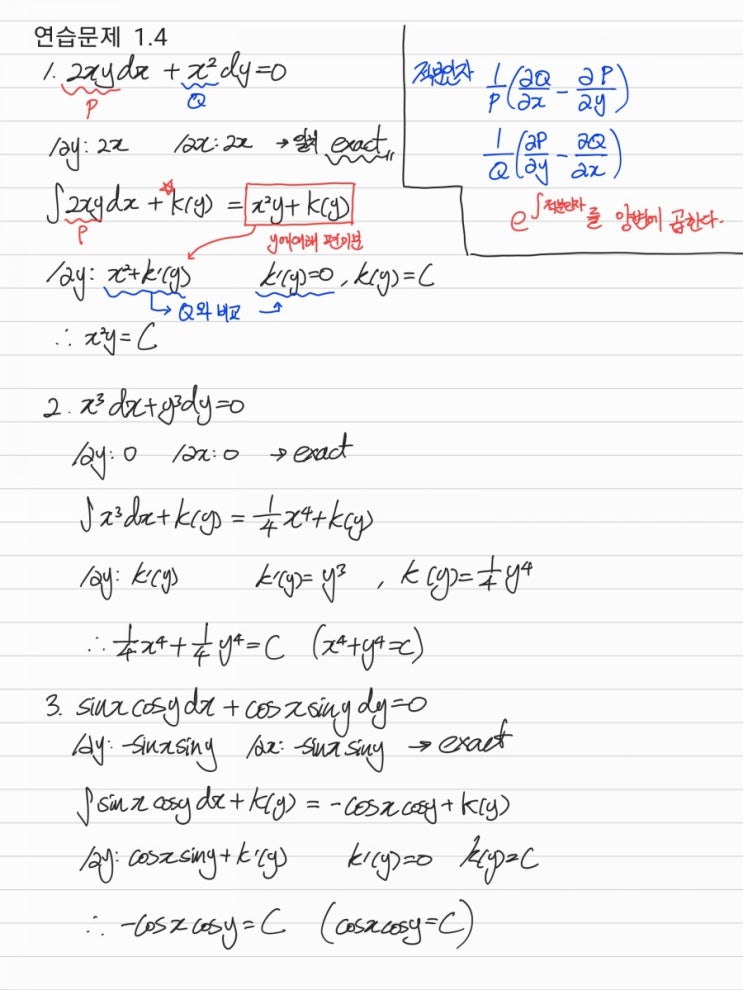 연습문제 1.4
1. 2xydx + x²dy=0
P Q
/∂y: 2x /∂x: 2x → 일치 exact
∫2xydx + ☆k(y) = x²y + k(y)
P y에대해 편미분
/∂y: x²+k'(y) k'(y)=0, k(y)=C
→ Q와 비교
∴ x²y=C
적분인자 1/P(∂Q/∂x - ∂P/∂y)
1/Q(∂P/∂y - ∂Q/∂x)
e^∫적분인자 를 양변에 곱한다.
2. x³dx+y³dy=0
/∂y: 0 /∂x: 0 → exact
∫x³dx+k(y) = 1/4 x⁴+k(y)
/∂y: k'(y) k'(y)= y³ , k(y)=1/4 y⁴
∴ 1/4 x⁴ + 1/4 y⁴=C (x⁴+y⁴=c)
3. sinxcosydx + cosxsinydy=0
/∂y: -sinxsiny /∂x: -sinxsiny → exact
∫sinxcosydx+k(y) = -cosxcosy+k(y)
/∂y: cosxsiny+k'(y) k'(y)=0 k(y)=C
∴ -cosxcosy=C (cosxcosy=C)